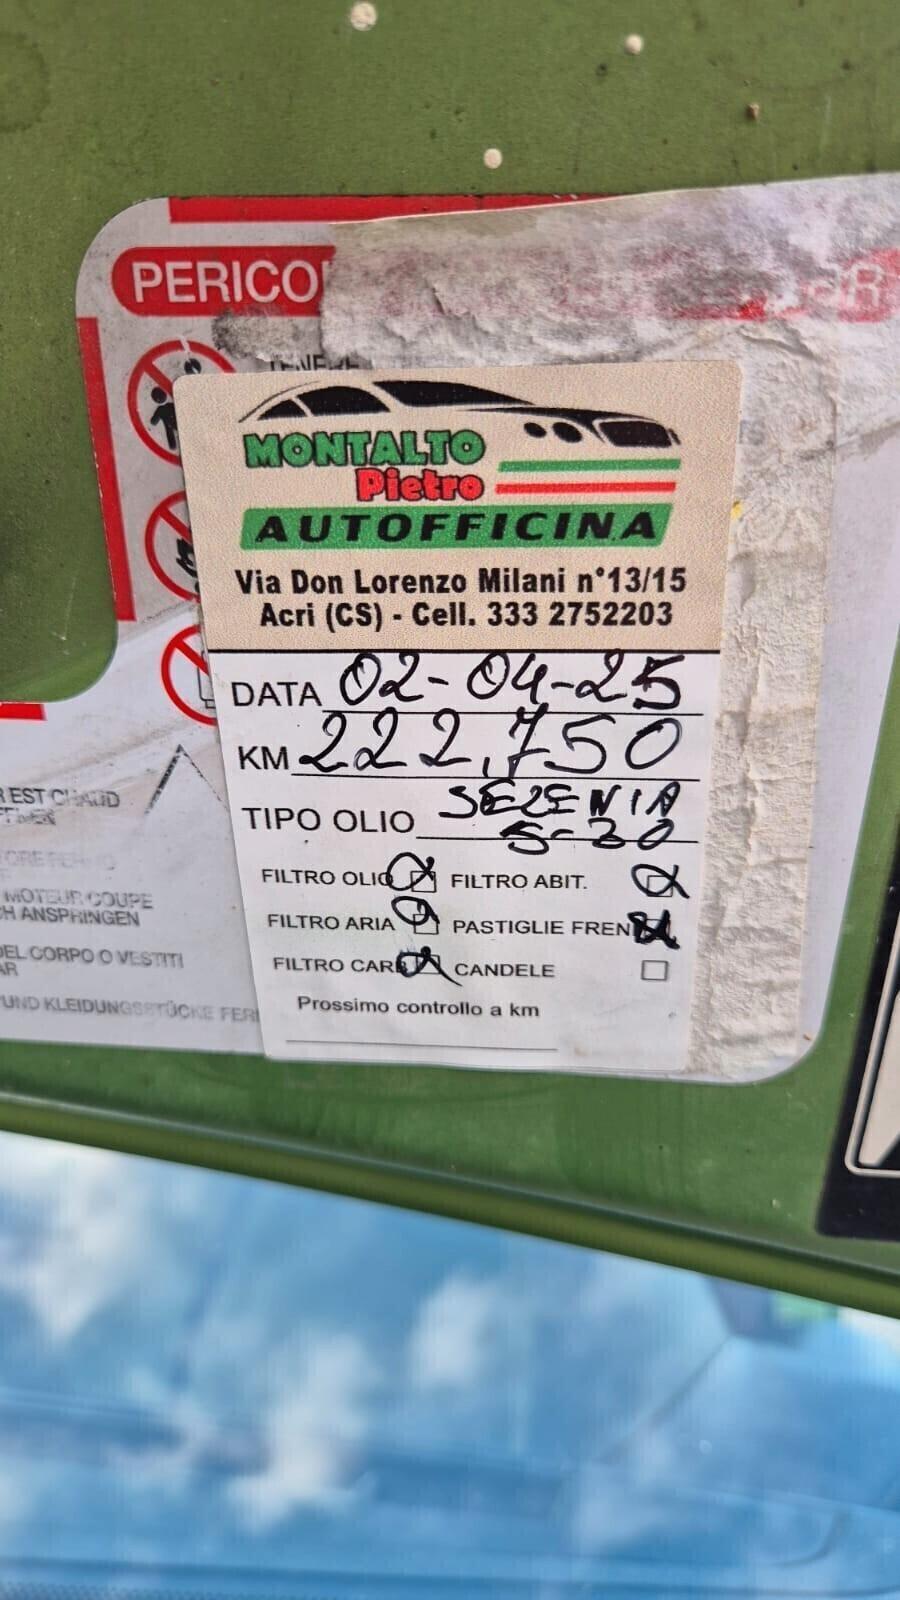 PERICO
TENERE
MONTALTO
Pietro
AUTOFFICINA
Via Don Lorenzo Milani n°13/15
Acri (CS) - Cell. 333 2752203
DATA 02-04-25
KM 222.750
TIPO OLIO SELENIA
5-30
FILTRO OLIO FILTRO ABIT.
FILTRO ARIA PASTIGLIE FRENI
FILTRO CARB CANDELE
Prossimo controllo a km
R EST CHAUD
MOTEUR COUPE
CH ANSPRINGEN
DEL CORPO O VESTITI
AR
UND KLEIDUNGSSTÜCKE FER